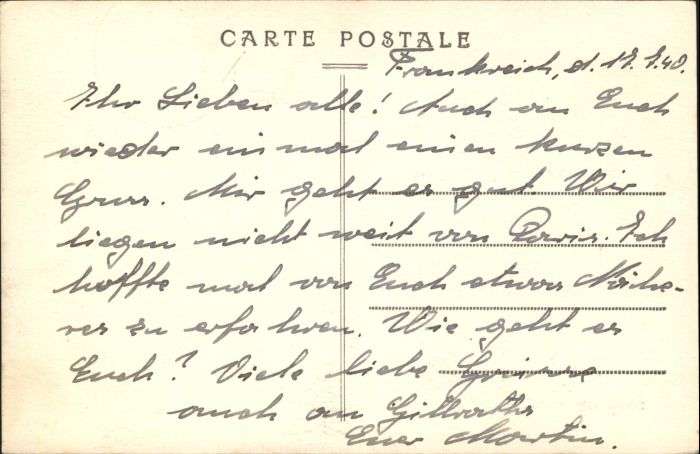 CARTE POSTALE
Frankreich, d. 17.7.40.
Ihr Lieben alle! Auch an Euch
wieder einmal einen kurzen
Gruss. Mir geht es gut. Wir
liegen nicht weit von Paris. Ich
hoffte mal von Euch etwas Nähe-
res zu erfahren. Wie geht es
Euch? Viele liebe Grüsse
auch an
Euer Martin.